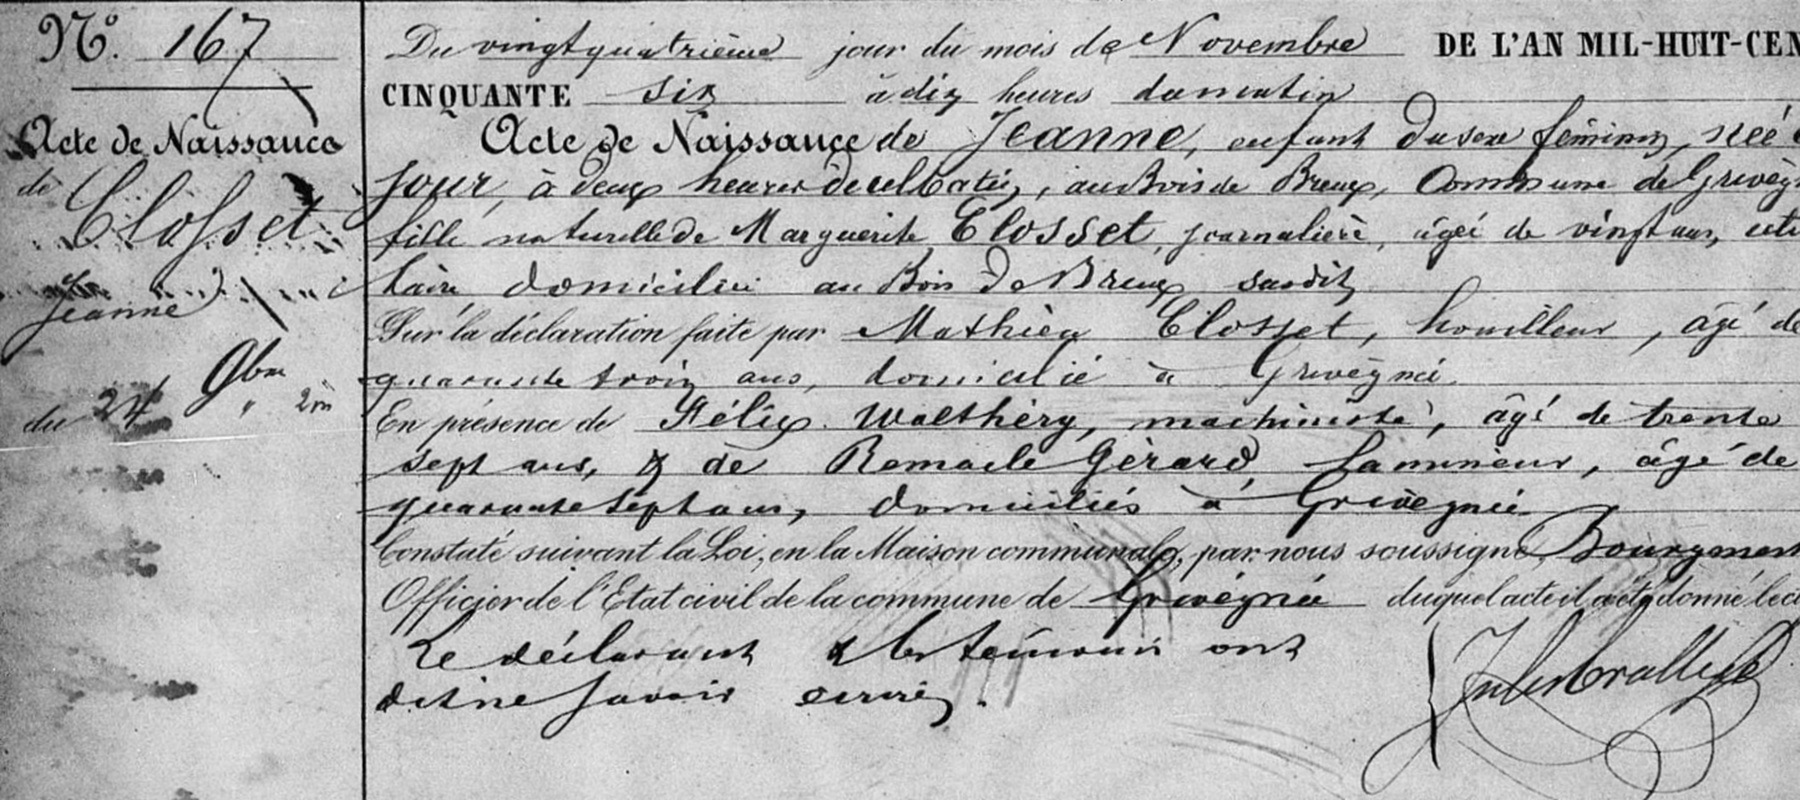 N° 167
Acte de Naissance
de
Closset
Jeanne
du 24 9bre
Du vingtquatrième jour du mois de Novembre DE L'AN MIL-HUIT-CEN
CINQUANTE six à dix heures du matin
Acte de Naissance de Jeanne, enfant du sexe féminin, née c
jour, à deux heures de cematin, au Bois de Breux, Commune de Grivegn
fille naturelle de Marguerite Closset, journalière, âgée de vingt ans, céli
taire domiciliée au Bois De Breux susdit
Sur la déclaration faite par Mathieu Closset, houilleur, âgé de
quarante trois ans, domicilié à Grivegnée.
En présence de Félix Walthéry, machiniste, âgé de trente
sept ans, & de Remacle Gérard, Lamineur, âgé de
quarante sept ans, domiciliés à Grivegnée
Constaté suivant la Loi, en la Maison communale, par nous soussigné Bourgmest
Officier de l'Etat civil de la commune de Grivegnée duquel acte il a été donné lec
Le déclarant & les témoins ont
dit ne savoir écrire.
Jules